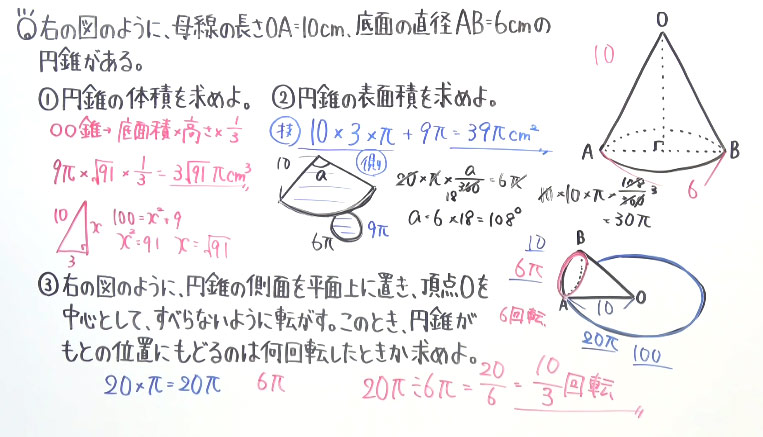 右の図のように、母線の長さOA=10cm、底面の直径AB=6cmの
円錐がある。
①円錐の体積を求めよ。
○○錐→底面積×高さ×1/3
9π×√91×1/3=3√91πcm³
10
x
3
100=x²+9
x²=91 x=√91
②円錐の表面積を求めよ。
技 10×3×π+9π=39πcm²
側
10
a
6π
9π
20×π×a/360=6π
18
a=6×18=108°
10×10×π×108/360 3
=30π
O
10
A
B
6
③右の図のように、円錐の側面を平面上に置き、頂点Oを
中心として、すべらないように転がす。このとき、円錐が
もとの位置にもどるのは何回転したときか求めよ。
20×π=20π 6π
20π÷6π=20/6=10/3回転
10
6π
6回転
B
A
10
O
20π
100